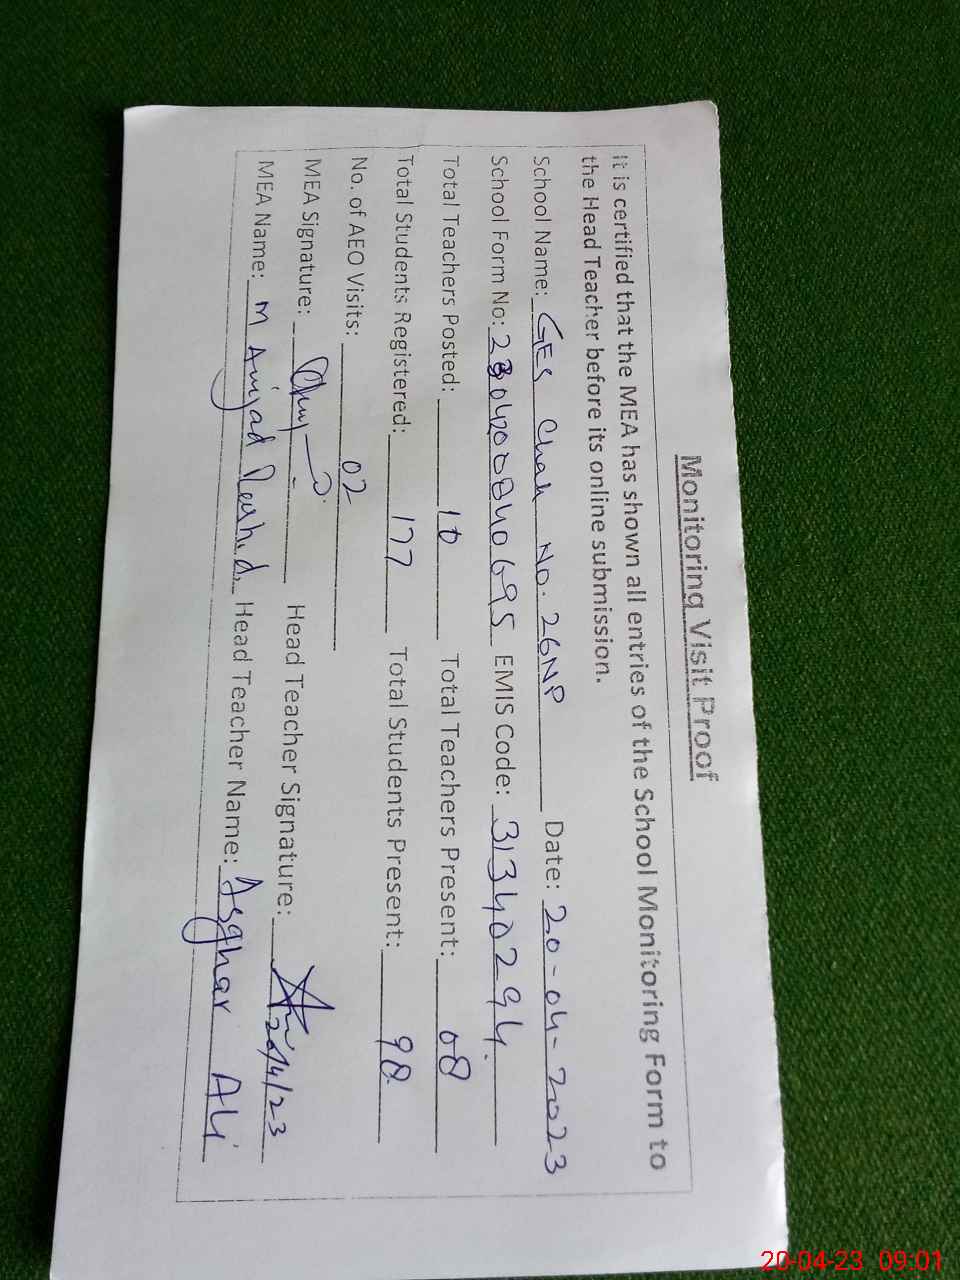 Monitoring Visit Proof
It is certified that the MEA has shown all entries of the School Monitoring Form to
the Head Teacher before its online submission.
School Name: GES Chak No. 26NP Date: 20-04-2023
School Form No: 2304200840695 EMIS Code: 31340294
Total Teachers Posted: 10 Total Teachers Present: 08
Total Students Registered: 177 Total Students Present: 98
No. of AEO Visits: 02
MEA Signature: Head Teacher Signature: 20/4/23
MEA Name: M Amjad Rashid Head Teacher Name: Asghar Ali
20-04-23 09:01